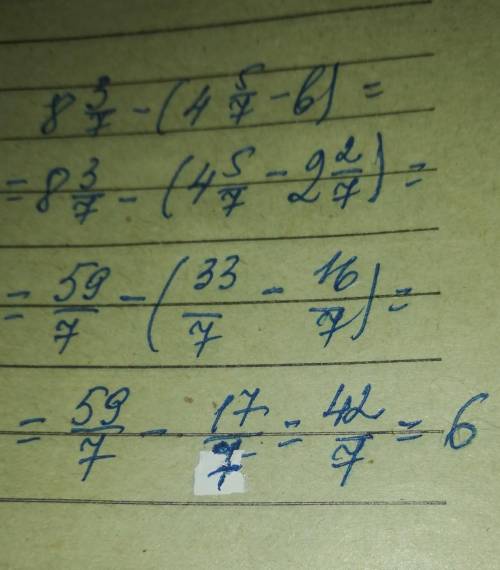 8 3/7 - (4 5/7 - b) =
= 8 3/7 - (4 5/7 - 2 2/7) =
= 59/7 - (33/7 - 16/7) =
= 59/7 - 17/7 = 42/7 = 6